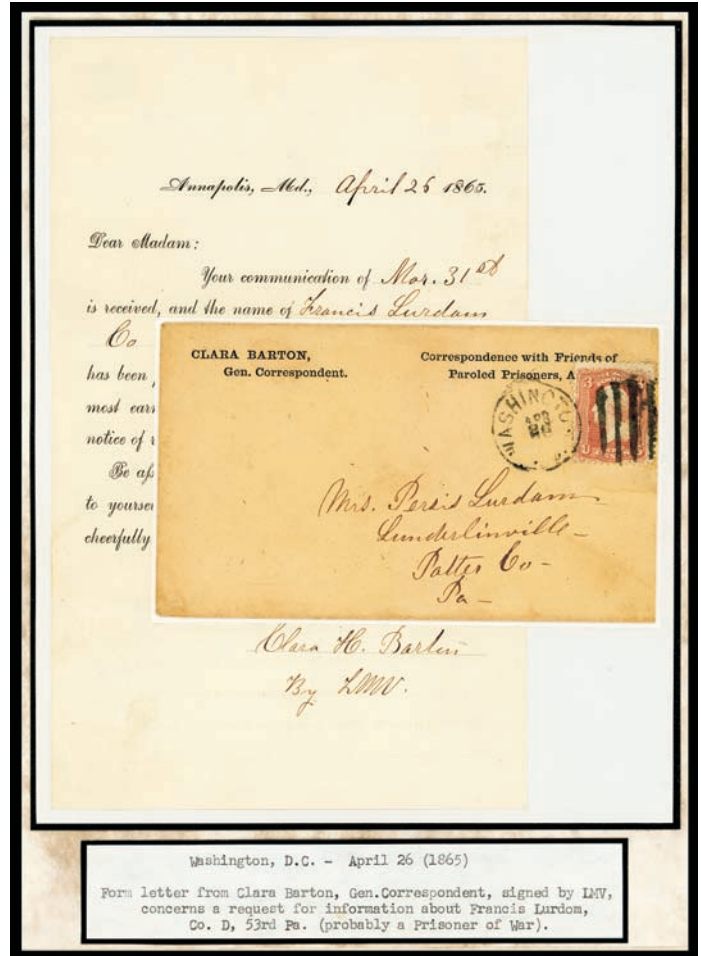 Annapolis, Md., April 25 1865.
Dear Madam:
Your communication of Mar. 31st
is received, and the name of Francis Lurdam
Co
has been
most earn
notice of
Be as
to yourse
cheerfully
CLARA BARTON,
Gen. Correspondent.
Correspondence with Friends of
Paroled Prisoners, A
WASHINGTO
APR
3
Mrs. Persis Lurdam
Sunderlinville-
Potter Co-
Pa-
Clara H. Barton
By LMV.
Washington, D.C. - April 26 (1865)
Form letter from Clara Barton, Gen.Correspondent, signed by LMV,
concerns a request for information about Francis Lurdom,
Co. D, 53rd Pa. (probably a Prisoner of War).